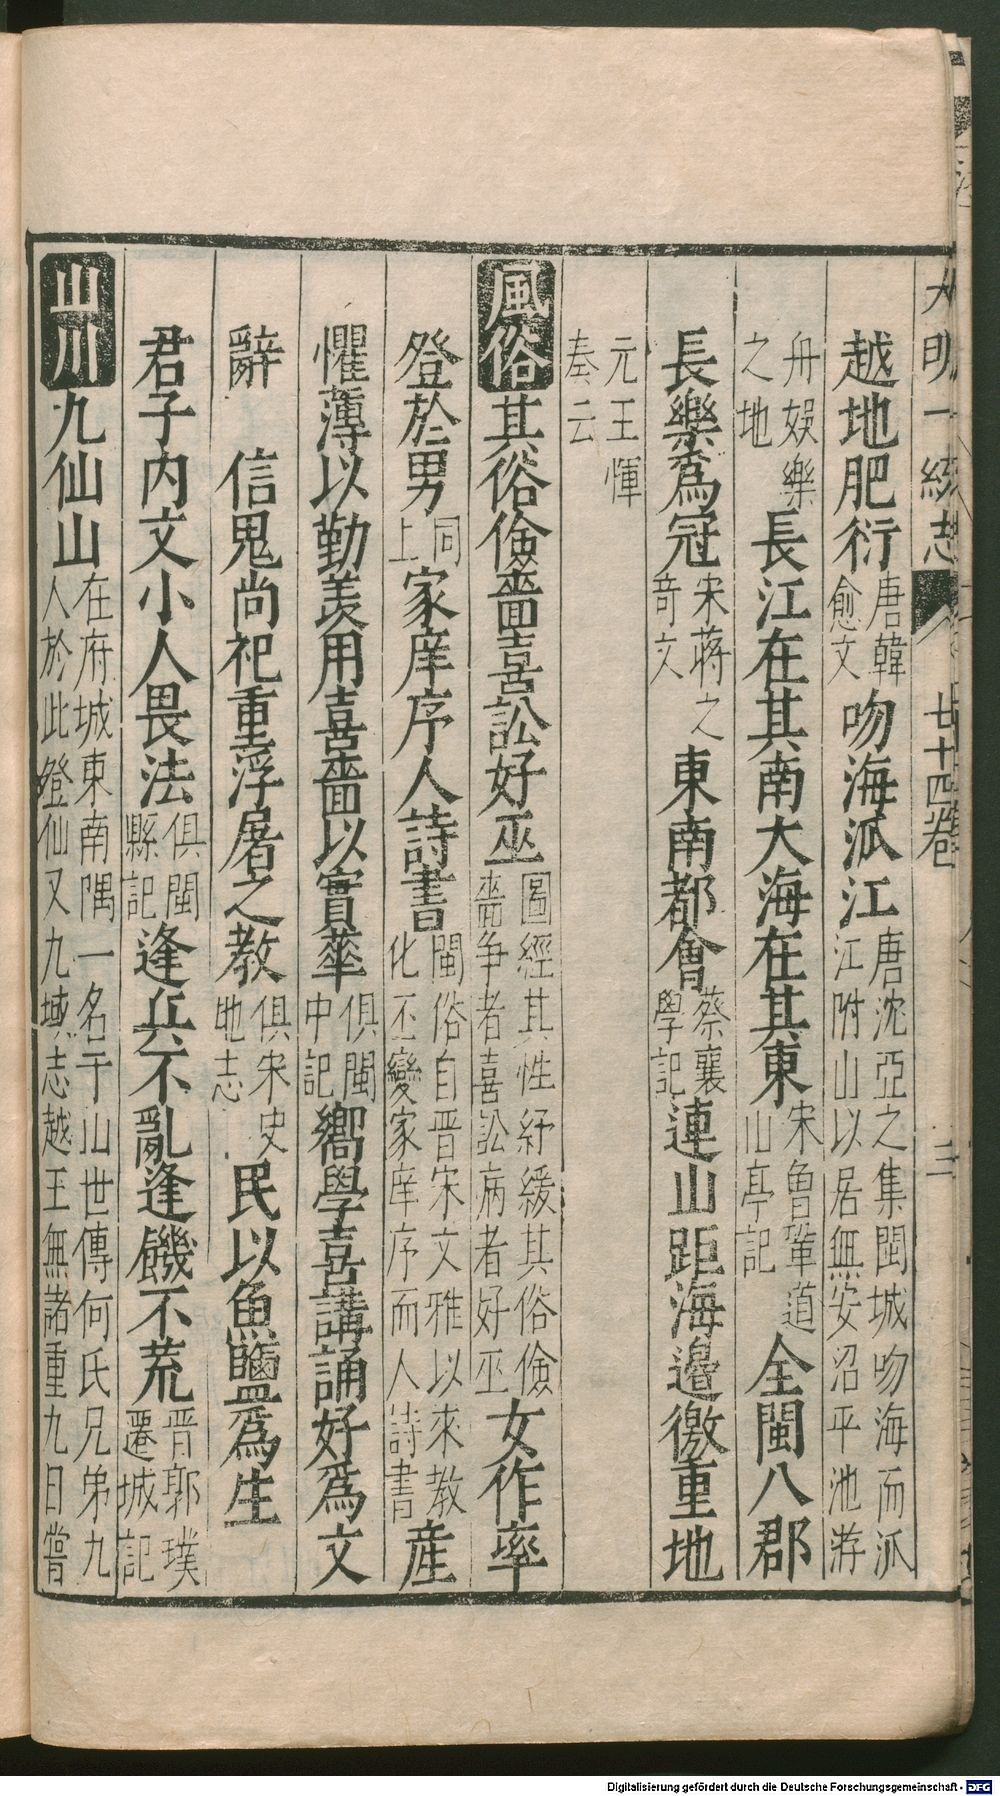 大明一統志 廿十四卷 三
越地肥衍唐韓愈文吻海派江唐沈亞之集閩城吻海而派江附山以居無安沼平池游
舟娛樂之地長江在其南大海在其東宋魯鞏道山亭記全閩八郡
長樂為冠宋蔣之奇文東南都會蔡襄學記連山距海邊徼重地
元王惲奏云
風俗其俗儉嗇喜訟好巫圖經其性紓緩其俗儉嗇争者喜訟病者好巫女作率
登於男同上家庠序人詩書閩俗自晋宋文雅以來教化丕變家庠序而人詩書產
懼薄以勤羨用喜嗇以實華俱閩中記嚮學喜講誦好為文
辭信鬼尚祀重浮屠之教俱宋史地志民以魚鹽為生
君子内文小人畏法俱閩縣記逢兵不亂逢饑不荒晋郭璞遷城記
山川九仙山在府城東南隅一名于山世傳何氏兄弟九人於此登仙又九域志越王無諸重九日嘗
Digitalisierung gefördert durch die Deutsche Forschungsgemeinschaft - DFG